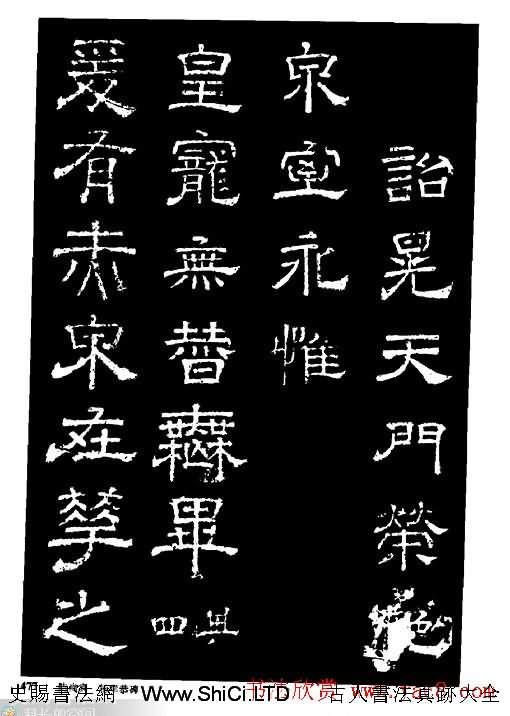 詒晃天門榮
泉室永惟
皇寵無替舞畢
其四
爰有赤泉在華之
史賜書法網 www.ShiCi.LTD 古人書法真跡大全
欣赏